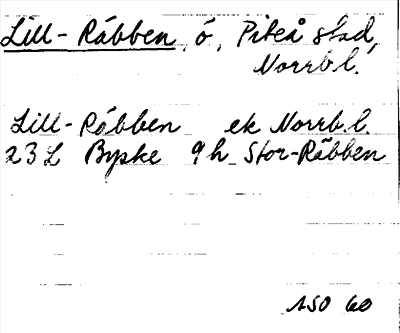 Lill-Räbben, ö, Piteå stad,
Norrb.l.
Lill-Räbben ek Norrb.l.
23L Byske 9h Stor-Räbben
ASO 60